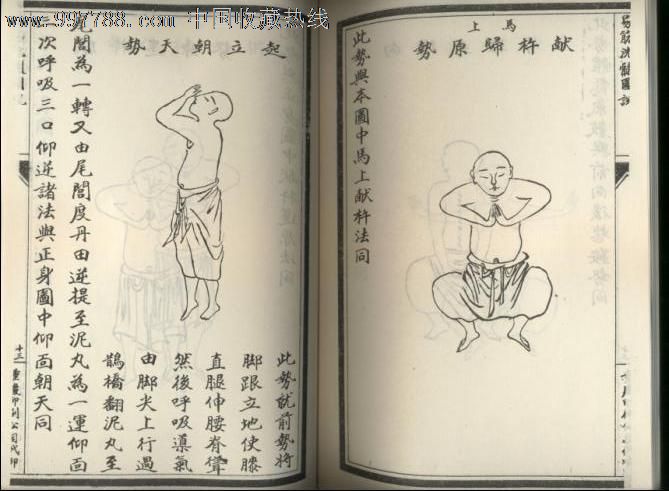 www.997788.com 中国收藏热线
易筋洗髓圖說
馬上
献杵歸原勢
此勢與本圖中馬上献杵法同
起立朝天勢
此勢就前勢將
脚跟立地使膝
直腿伸腰脊聳
然後呼吸導氣
由脚尖上行過
鵲橋翻泥丸至
尾閭為一轉又由尾閭度丹田逆提至泥丸為一運仰面
三次呼吸三口仰逆諸法與正身圖中仰面朝天同
十三
印刷公司代印